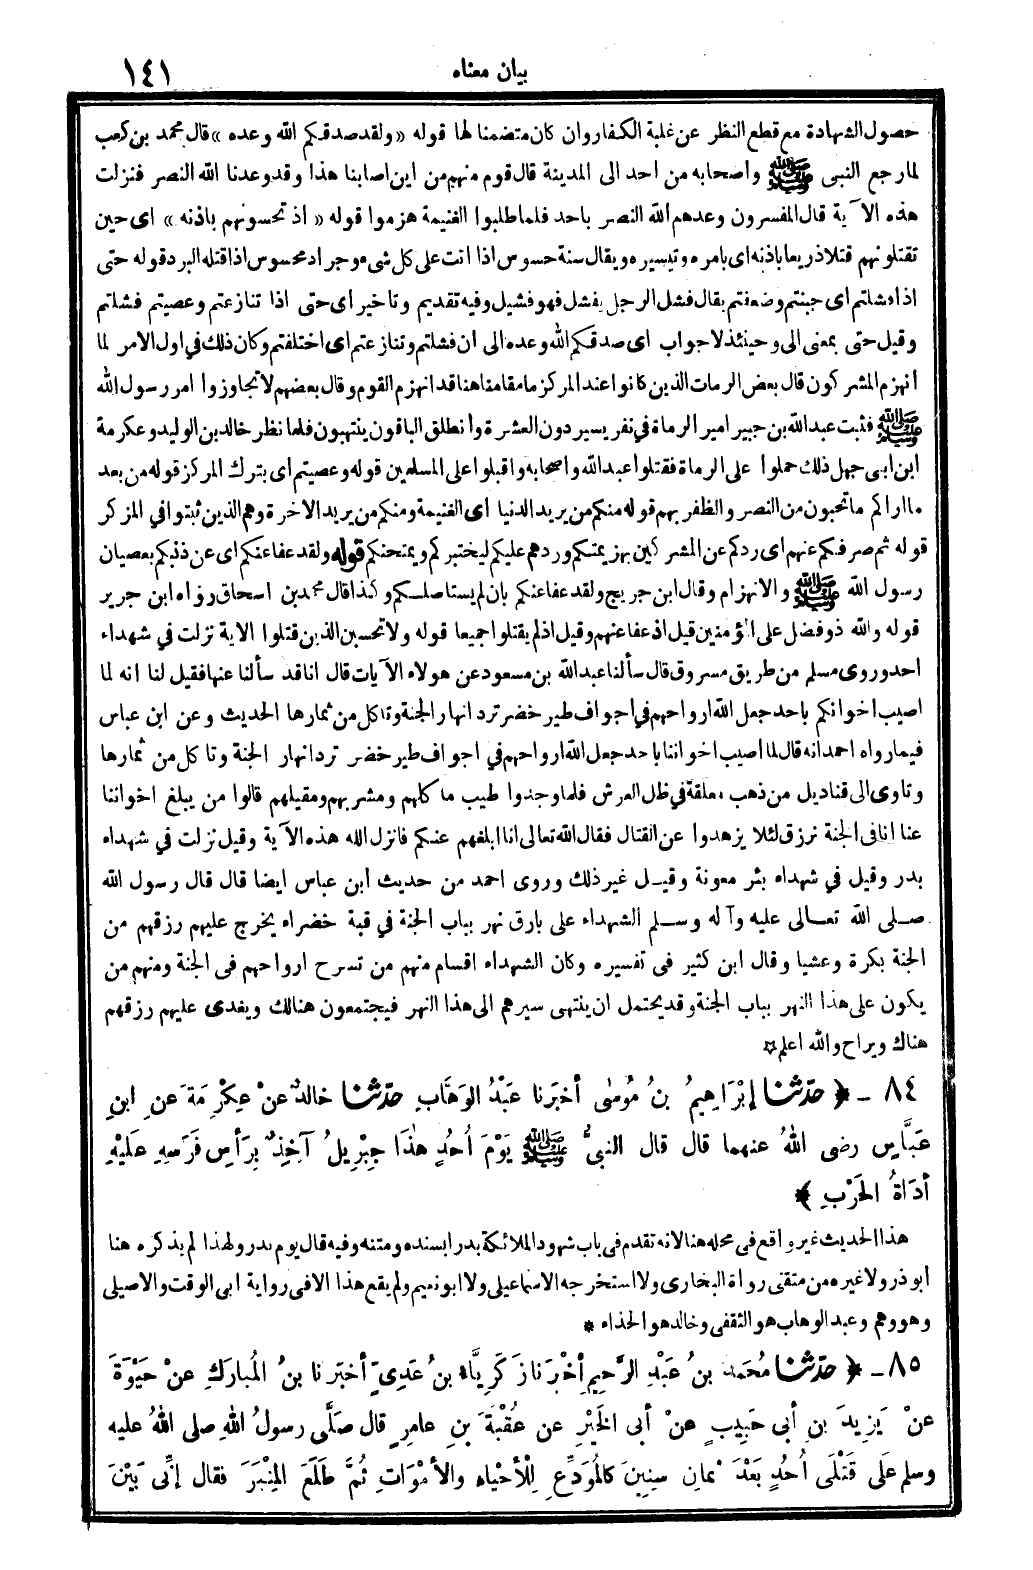 ١٤١
بيان معناه
حصول الشهادة مع قطع النظر عن غلبة الكفار وان كان متضمنا لها قوله «ولقد صدقكم الله وعده» قال محمد بن كعب
لما رجع النبى ﷺ واصحابه من احد الى المدينة قال قوم منهم من اين اصابنا هذا وقد وعدنا الله النصر فنزلت
هذه الآية قال المفسرون وعدهم الله النصر باحد فلما طلبوا الغنيمة هزموا قوله «اذ تحسونهم باذنه» اى حين
تقتلونهم قتلا ذريعا باذنه اى بامره وتيسيره ويقال سنة حسوس اذا اتت على كل شىء وجراد محسوس اذا قتله البرد قوله حتى
اذا فشلتم اى جبنتم وضعفتم يقال فشل الرجل يفشل فهو فشيل وفيه تقديم وتاخير اى حتى اذا تنازعتم وعصيتم فشلتم
وقيل حتى بمعنى الى وحينئذ لا جواب اى صدقكم الله وعده الى ان فشلتم وتنازعتم اى اختلفتم وكان ذلك في اول الامر لما
انهزم المشركون قال بعض الرمات الذين كانوا عند المركز ما مقامنا هنا قد انهزم القوم وقال بعضهم لا تجاوزوا امر رسول الله
ﷺ فثبت عبد الله بن جبير امير الرماة في نفر يسير دون العشرة وانطلق الباقون ينتهبون فلما نظر خالد بن الوليد وعكرمة
ابن ابى جهل ذلك حملوا على الرماة فقتلوا عبد الله واصحابه واقبلوا على المسلمين قوله وعصيتم اى بترك المركز قوله من بعد
ما اراكم ما تحبون من النصر والظفر بهم قوله منكم من يريد الدنيا اى الغنيمة ومنكم من يريد الاخرة وهم الذين ثبتوا في المركز
قوله ثم صرفكم عنهم اى ردكم عن المشركين بهزيمتكم وردهم عليكم ليختبركم ويمتحنكم قوله ولقد عفا عنكم اى عن ذنبكم بعصيان
رسول الله ﷺ والانهزام وقال ابن جريج ولقد عفا عنكم بان لم يستاصلكم وكذا قال محمد بن اسحاق رواه ابن جرير
قوله والله ذو فضل على المؤمنين قيل اذ عفا عنهم وقيل اذ لم يقتلوا جميعا قوله ولا تحسبن الذين قتلوا الاية نزلت في شهداء
احد وروى مسلم من طريق مسروق قال سألنا عبد الله بن مسعود عن هولاء الآيات قال اناقد سألنا عنها فقيل لنا انه لما
اصيب اخوانكم باحد جعل الله ارواحهم في اجواف طير خضر ترد انهار الجنة وتاكل من ثمارها الحديث وعن ابن عباس
فيما رواه احمد انه قال لما اصيب اخواننا باحد جعل الله ارواحهم في اجواف طير خضر ترد انهار الجنة وتاكل من ثمارها
وتاوى الى قناديل من ذهب معلقة في ظل العرش فلما وجدوا طيب ماكلهم ومشربهم ومقيلهم قالوا من يبلغ اخواننا
عنا انا فى الجنة نرزق لئلا يزهدوا عن القتال فقال الله تعالى انا ابلغهم عنكم فانزل الله هذه الآية وقيل نزلت في شهداء
بدر وقيل في شهداء بئر معونة وقيل غير ذلك وروى احمد من حديث ابن عباس ايضا قال قال رسول الله
صلى الله تعالى عليه وآله وسلم الشهداء على بارق نهر بباب الجنة في قبة خضراء يخرج عليهم رزقهم من
الجنة بكرة وعشيا وقال ابن كثير فى تفسيره وكان الشهداء اقسام منهم من تسرح ارواحهم فى الجنة ومنهم من
يكون على هذا النهر بباب الجنة وقد يحتمل ان ينتهى سيرهم الى هذا النهر فيجتمعون هنالك ويغدى عليهم رزقهم
هناك ويراح والله اعلم☆
٨٤ - ﴿ حدّثنا إبْرَاهِيمُ بنُ مُوسٰى أخبَرنا عَبْدُ الوَهَّابِ حدّثنا خالدٌ عنْ عِكْرِمَةَ عنِ ابنِ
عَبَّاسٍ رضى اللهُ عنهما قال قال النبىُّ ﷺ يَوْمَ أُحُدٍ هٰذَا جِبْرِيلُ آخِذٌ بِرَأسِ فَرَسِهِ عَليْهِ
أدَاةُ الحَرْبِ ﴾
هذا الحديث غير واقع فى محله هنا لانه تقدم فى باب شهود الملائكة بدرا بسنده ومتنه وفيه قال يوم بدر ولهذا لم يذكره هنا
ابو ذر ولا غيره من متقنى رواة البخارى ولا استخرجه الاسماعيلى ولا ابو نعيم ولم يقع هذا الا فى رواية ابى الوقت والاصيلى
وهو وهم وعبد الوهاب هو الثقفى وخالد هو الحذاء *
٨٥ - ﴿ حدّثنا مُحَمدُ بنُ عَبْدِ الرَّحِيمِ أخْبَرَنا زَكَرِيَّاءُ بنُ عَدِىٍّ أخبَرنا بنُ المُبارَكِ عنْ حَيْوَةَ
عنْ يَزِيدَ بنِ أبى حَبِيبٍ عنْ أبى الخَيْرِ عن عُقْبَةَ بنِ عامِرٍ قال صَلَّى رسولُ اللهِ صلى اللهُ عليه
وسلم عَلَى قَتْلَى أُحُدٍ بَعْدَ ثمانِ سِنِينَ كالمُوَدِّعِ لِلْأحْياءِ والأمْوَاتِ ثُمَّ طَلَعَ المِنْبَرَ فقال إنِّى بَيْنَ